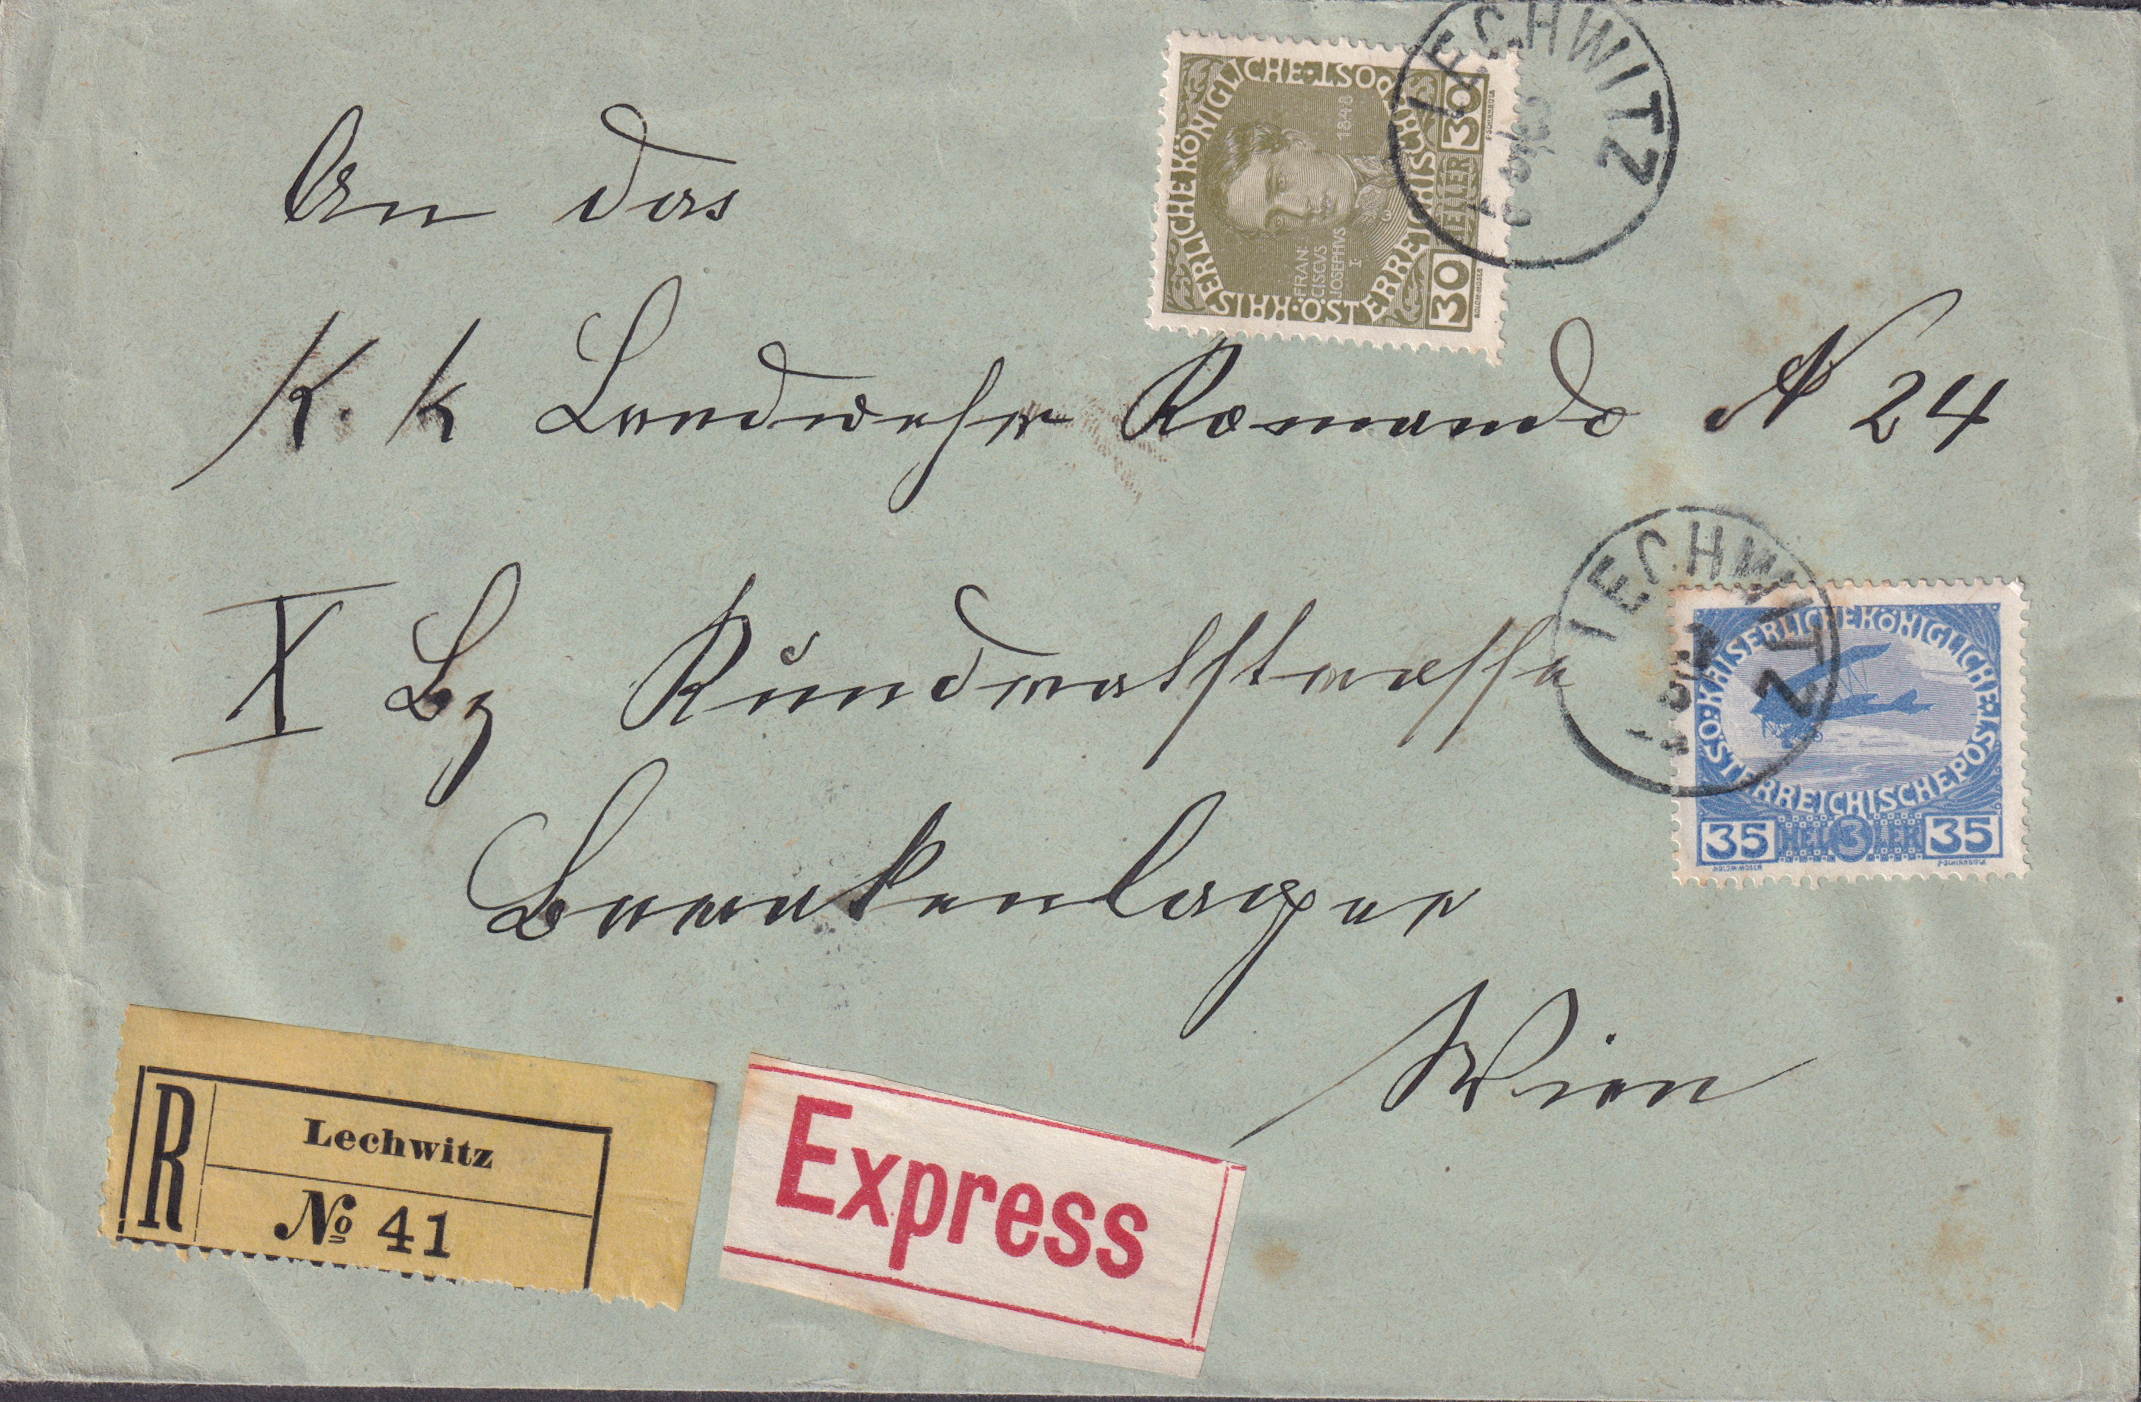 An das
K. k Landwehr Komando N 24
X Bz Kundratstrasse
Barakenlager
Wien
KAISERLICHE KÖNIGLICHE ÖSTERREICHISCHE POST
1848
FRAN:
CISCVS
IOSEPHVS
I·
30 HELLER 30
LECHWITZ
LECHWITZ
KAISERLICHE KÖNIGLICHE ÖSTERREICHISCHE POST
35 HEL 3 LER 35
R
Lechwitz
No 41
Express